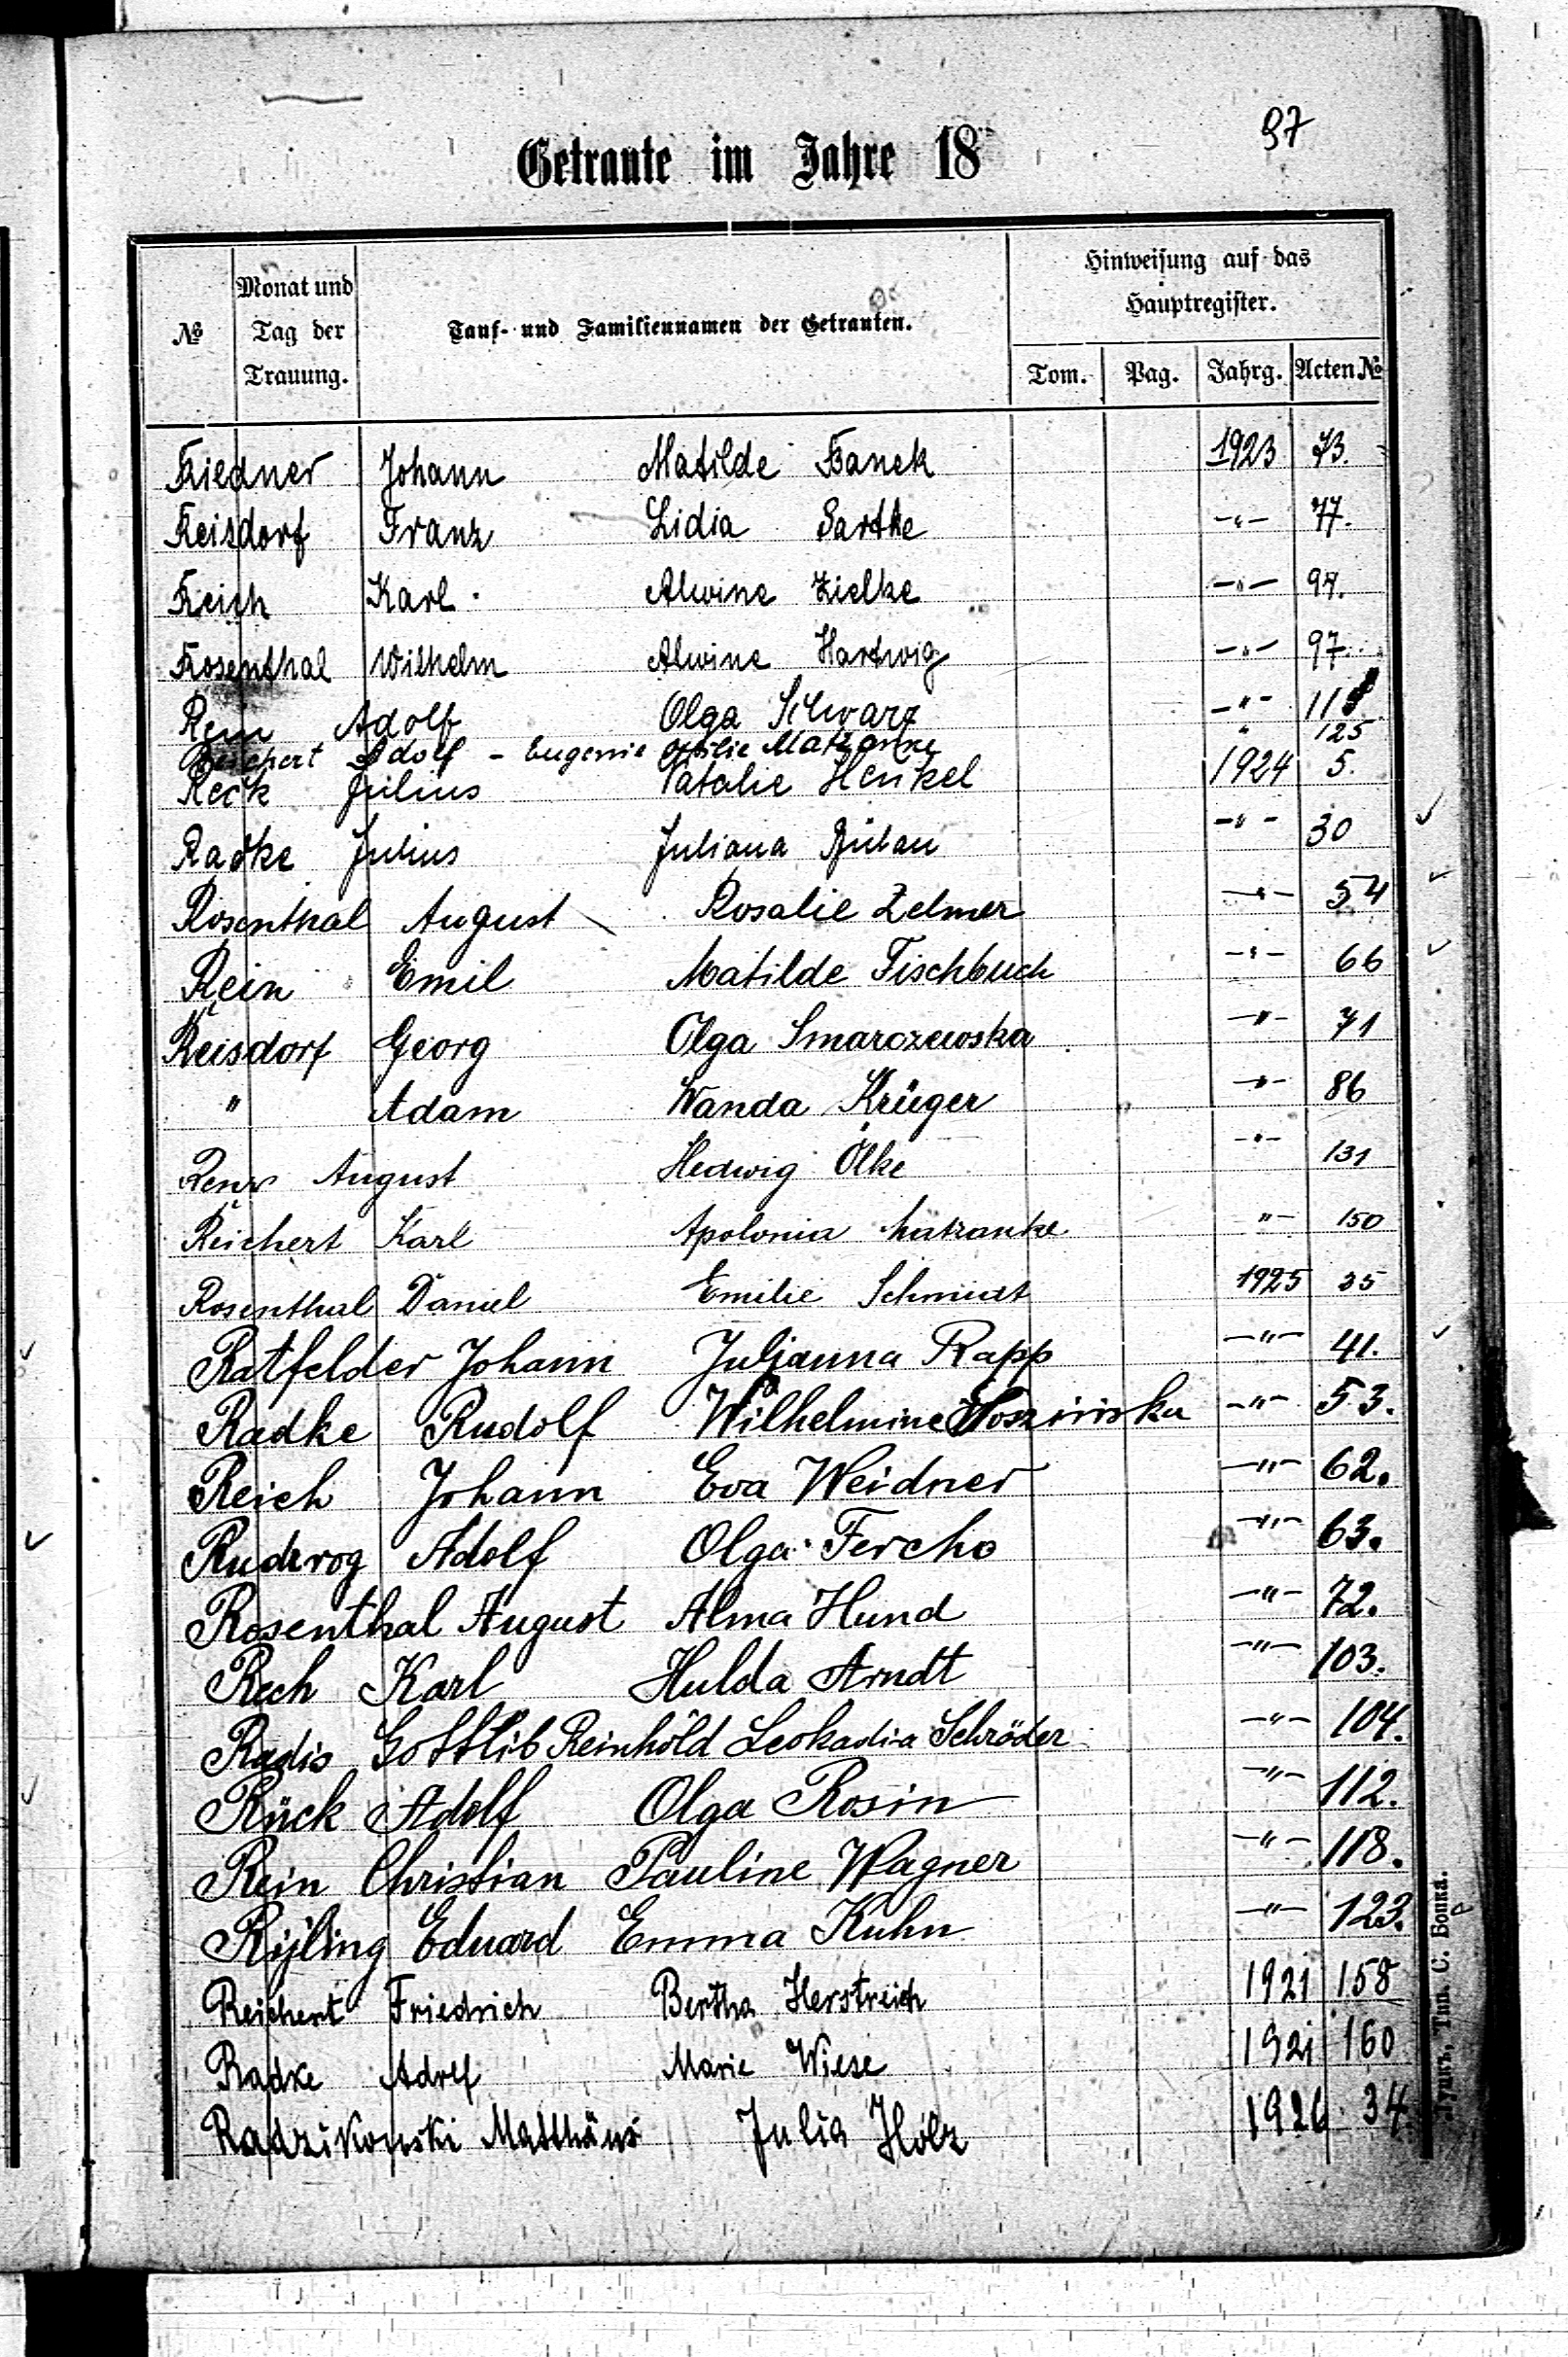 97
Getraute im Jahre 18
№ Monat und Tag der Trauung. Tauf- und Familiennamen der Getrauten. Hinweisung auf das Hauptregister.
Tom. Pag. Jahrg. Acten №
Riedner Johann Matilde Banek 1923 73.
Reisdorf Franz Lidia Bartke -"- 77.
Reich Karl Alwine Zielke -"- 94.
Rosenthal Wilhelm Alwine Hartwig -"- 97.
Rein Adolf Olga Schwarz -"-
Reichert Adolf - Eugenie Ottilie Matzanke " 125
Reck Julius Natalie Henkel 1924 5.
Radke Julius Juliana Bülau -"- 30
Rosenthal August Rosalie Zelmer -"- 54
Rein Emil Matilde Fischbuch -"- 66
Reisdorf Georg Olga Smarczewska -"- 71
" Adam Wanda Krüger -"- 86
Renz August Hedwig Ölke -"- 131
Reichert Karl Apolonia Matzanke "- 150
Rosenthal Daniel Emilie Schmidt 1925 35
Ratfelder Johann Julianna Rapp -"- 41.
Radke Rudolf Wilhelmine -"- 53.
Reich Johann Eva Weidner -"- 62.
Rudzrog Adolf Olga Fercho -"- 63.
Rosenthal August Alma Hund -"- 72.
Rech Karl Hulda Arndt -"- 103.
Radis Gottlib Reinhold Leokadia Schröder -"- 104.
Rück Adolf Olga Rosin -"- 112.
Rein Christian Pauline Wagner -"- 118.
Rijling Eduard Emma Kuhn -"- 123.
Reichert Friedrich Bertha Herstreich 1921 158
Radke Adolf Marie Wiese 1921 160
Radzikowski Matthäus Julia Hölz 1926 34